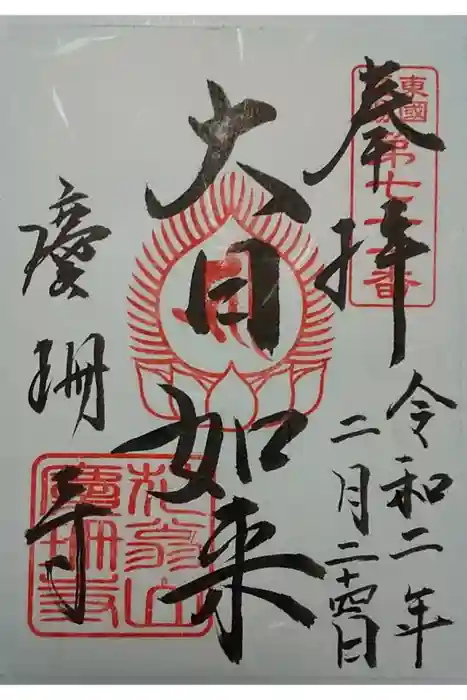 東國
第七
番
奉拝
令和二年
二月二十四日
大日如来
慶珊寺
花翁山
慶珊寺